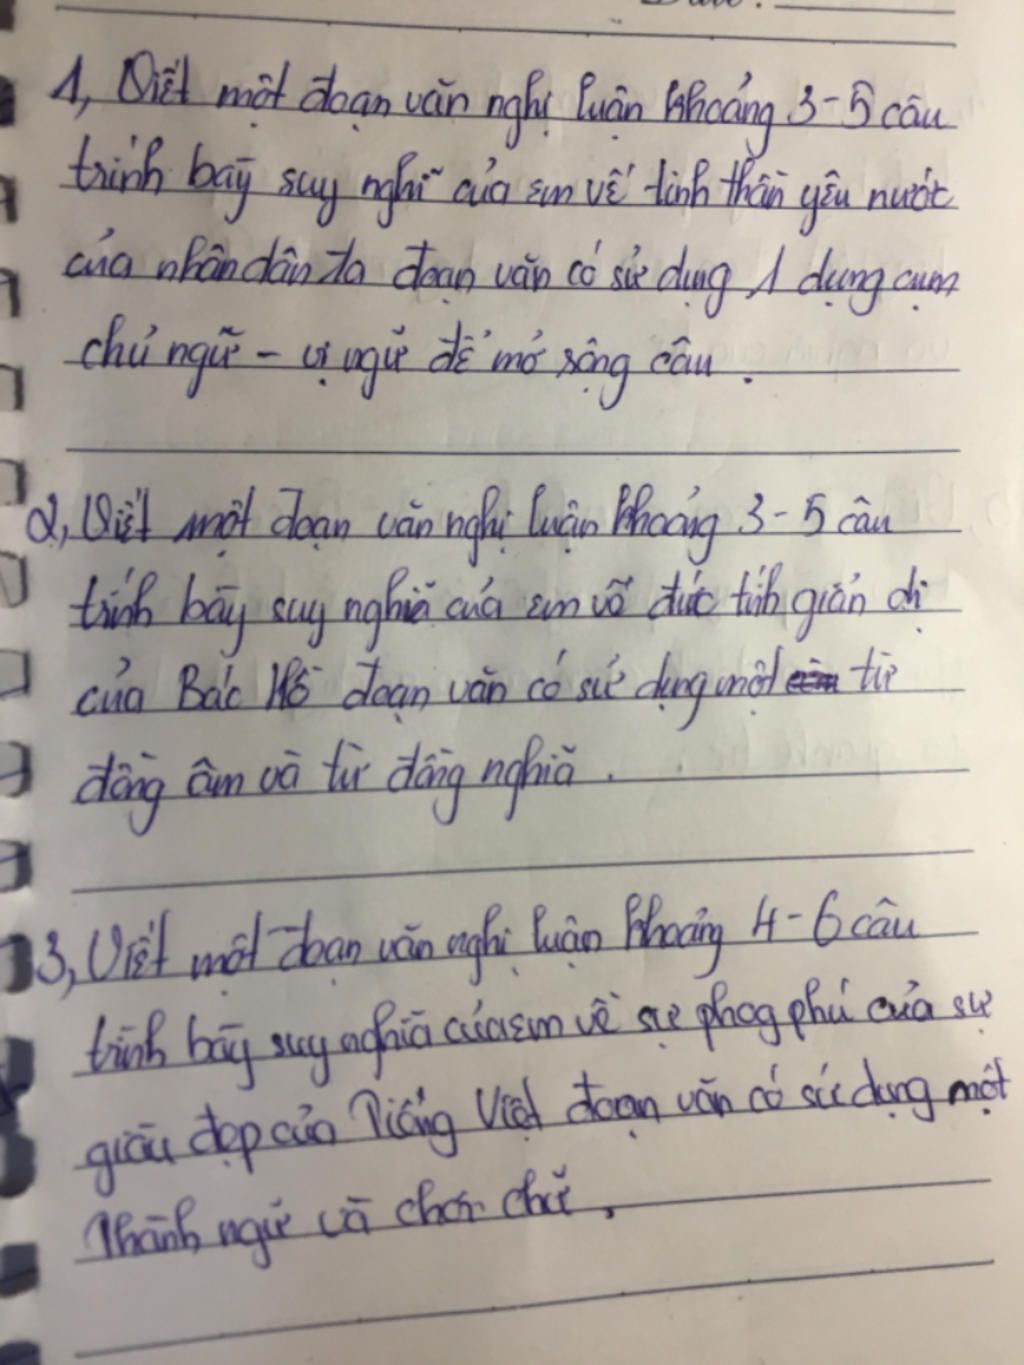 1, Viết một đoạn văn nghị luận khoảng 3-5 câu
trình bày suy nghĩ của em về tinh thần yêu nước
của nhân dân ta đoạn văn có sử dụng 1 dụng cụm
chủ ngữ - vị ngữ để mở rộng câu.
2, Viết một đoạn văn nghị luận khoảng 3-5 câu
trình bày suy nghĩ của em về đức tính giản dị
của Bác Hồ đoạn văn có sử dụng một từ
đồng âm và từ đồng nghĩa.
3, Viết một đoạn văn nghị luận khoảng 4-6 câu
trình bày suy nghĩ của em về sự phog phú của sự
giàu đẹp của Tiếng Việt đoạn văn có sử dụng một
Thành ngữ và chơi chữ.